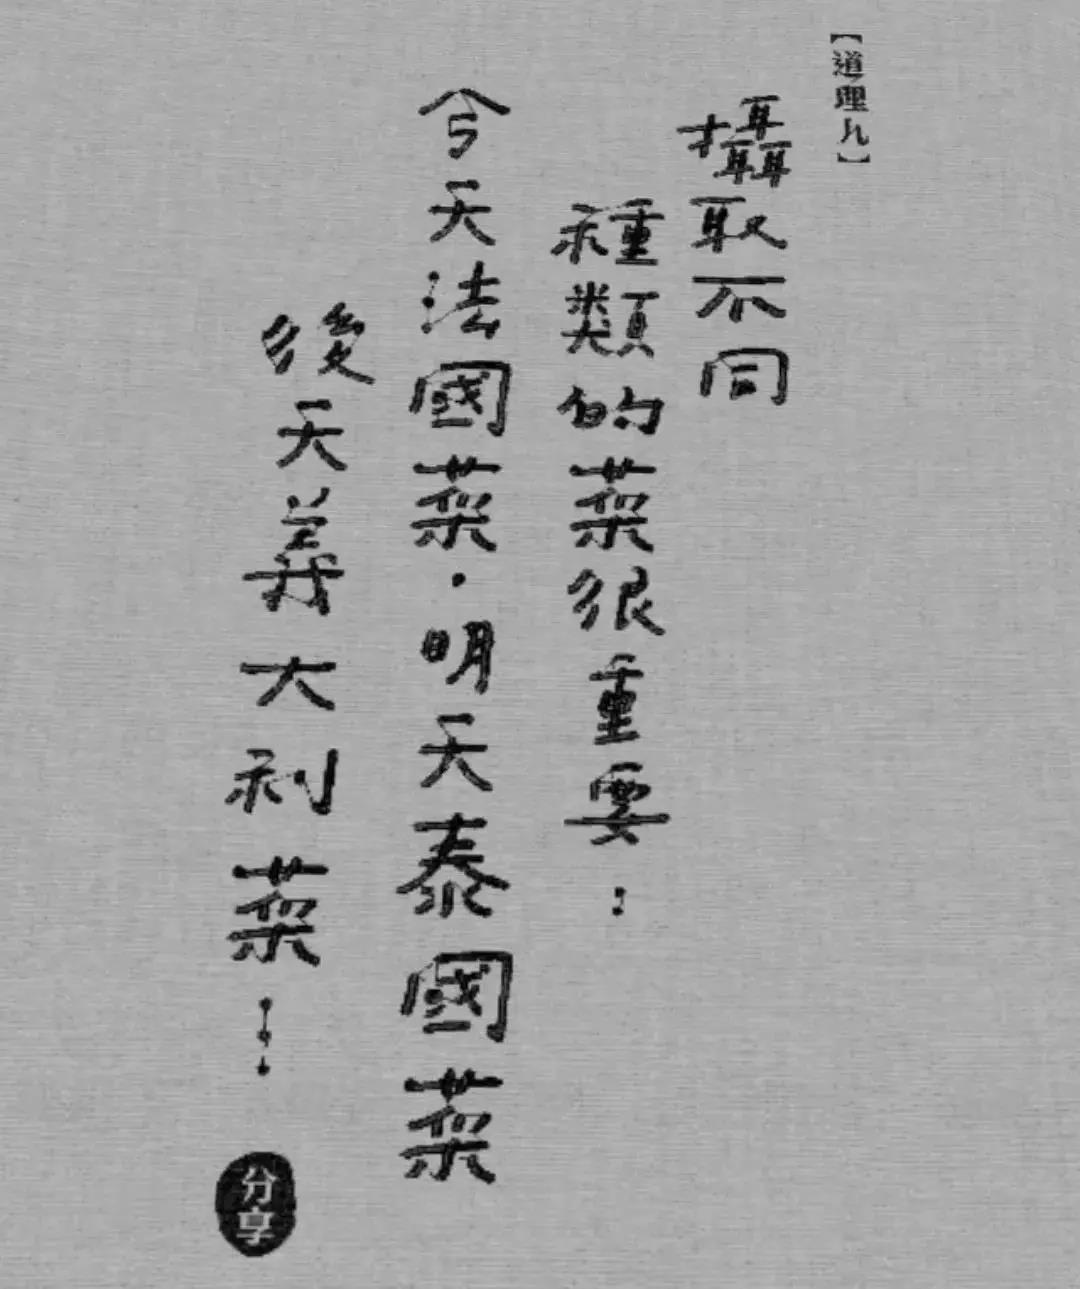 【道理九】
攝取不同
種類的菜很重要：
今天法國菜．明天泰國菜
後天義大利菜…
分享